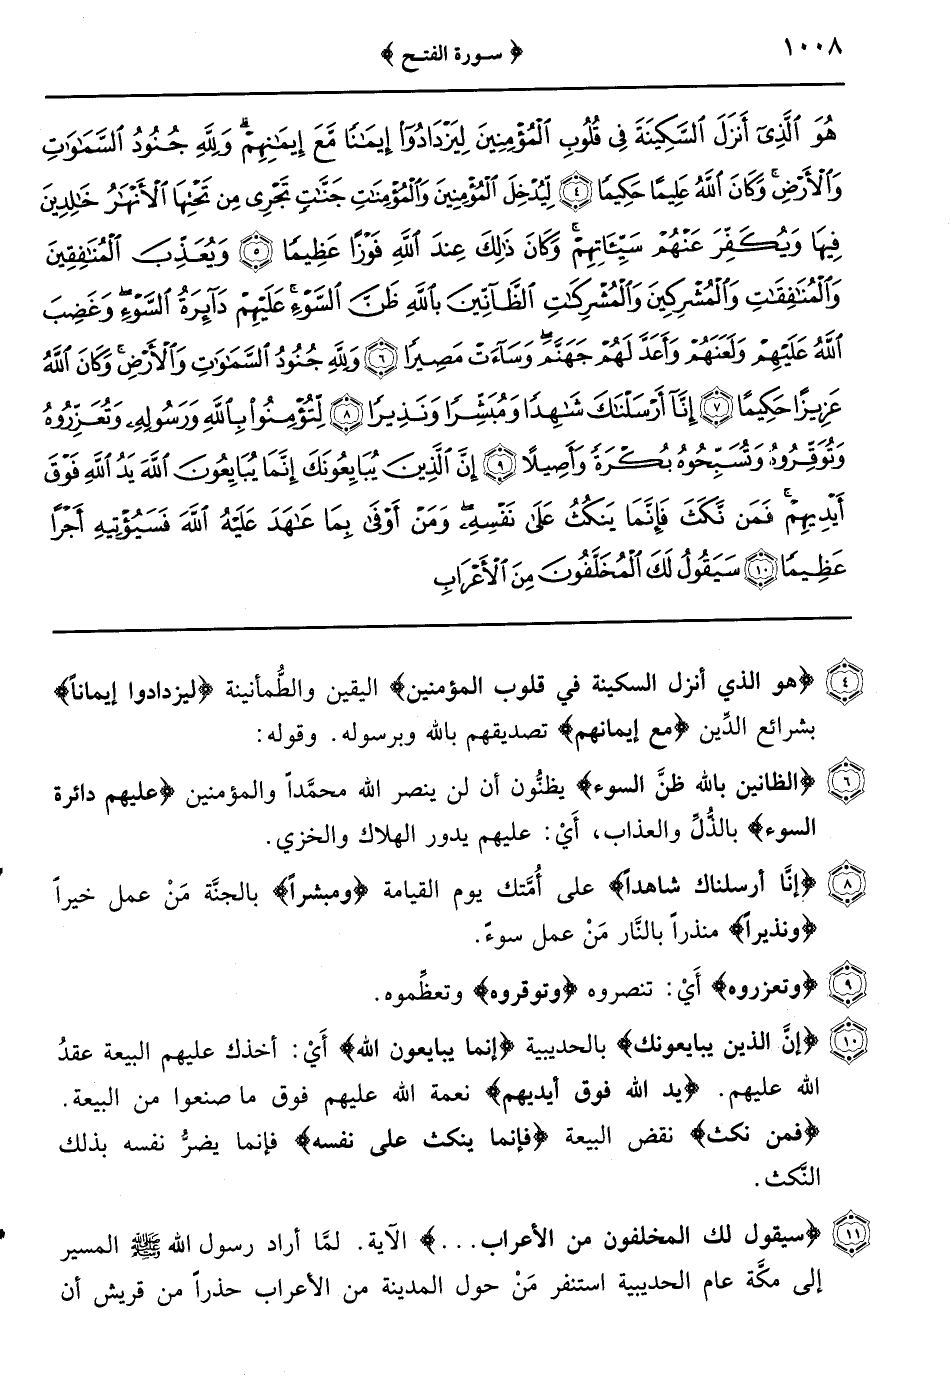 ١٠٠٨
﴿ سورة الفتح ﴾
هُوَ ٱلَّذِىٓ أَنزَلَ ٱلسَّكِينَةَ فِى قُلُوبِ ٱلْمُؤْمِنِينَ لِيَزْدَادُوٓا۟ إِيمَٰنًا مَّعَ إِيمَٰنِهِمْ ۗ وَلِلَّهِ جُنُودُ ٱلسَّمَٰوَٰتِ
وَٱلْأَرْضِ ۚ وَكَانَ ٱللَّهُ عَلِيمًا حَكِيمًا ﴿٤﴾ لِّيُدْخِلَ ٱلْمُؤْمِنِينَ وَٱلْمُؤْمِنَٰتِ جَنَّٰتٍ تَجْرِى مِن تَحْتِهَا ٱلْأَنْهَٰرُ خَٰلِدِينَ
فِيهَا وَيُكَفِّرَ عَنْهُمْ سَيِّـَٔاتِهِمْ ۚ وَكَانَ ذَٰلِكَ عِندَ ٱللَّهِ فَوْزًا عَظِيمًا ﴿٥﴾ وَيُعَذِّبَ ٱلْمُنَٰفِقِينَ
وَٱلْمُنَٰفِقَٰتِ وَٱلْمُشْرِكِينَ وَٱلْمُشْرِكَٰتِ ٱلظَّآنِّينَ بِٱللَّهِ ظَنَّ ٱلسَّوْءِ ۚ عَلَيْهِمْ دَآئِرَةُ ٱلسَّوْءِ ۖ وَغَضِبَ
ٱللَّهُ عَلَيْهِمْ وَلَعَنَهُمْ وَأَعَدَّ لَهُمْ جَهَنَّمَ ۖ وَسَآءَتْ مَصِيرًا ﴿٦﴾ وَلِلَّهِ جُنُودُ ٱلسَّمَٰوَٰتِ وَٱلْأَرْضِ ۚ وَكَانَ ٱللَّهُ
عَزِيزًا حَكِيمًا ﴿٧﴾ إِنَّآ أَرْسَلْنَٰكَ شَٰهِدًا وَمُبَشِّرًا وَنَذِيرًا ﴿٨﴾ لِّتُؤْمِنُوا۟ بِٱللَّهِ وَرَسُولِهِۦ وَتُعَزِّرُوهُ
وَتُوَقِّرُوهُ وَتُسَبِّحُوهُ بُكْرَةً وَأَصِيلًا ﴿٩﴾ إِنَّ ٱلَّذِينَ يُبَايِعُونَكَ إِنَّمَا يُبَايِعُونَ ٱللَّهَ يَدُ ٱللَّهِ فَوْقَ
أَيْدِيهِمْ ۚ فَمَن نَّكَثَ فَإِنَّمَا يَنكُثُ عَلَىٰ نَفْسِهِۦ ۖ وَمَنْ أَوْفَىٰ بِمَا عَٰهَدَ عَلَيْهُ ٱللَّهَ فَسَيُؤْتِيهِ أَجْرًا
عَظِيمًا ﴿١٠﴾ سَيَقُولُ لَكَ ٱلْمُخَلَّفُونَ مِنَ ٱلْأَعْرَابِ
﴿٤﴾ ﴿هو الذي أنزل السكينة في قلوب المؤمنين﴾ اليقين والطُّمأنينة ﴿ليزدادوا إيماناً﴾
بشرائع الدِّين ﴿مع إيمانهم﴾ تصديقهم بالله وبرسوله. وقوله:
﴿٦﴾ ﴿الظانين بالله ظنَّ السوء﴾ يظنُّون أن لن ينصر الله محمَّداً والمؤمنين ﴿عليهم دائرة
السوء﴾ بالذُّلِّ والعذاب، أَيْ: عليهم يدور الهلاك والخزي.
﴿٨﴾ ﴿إنَّا أرسلناك شاهداً﴾ على أُمَّتك يوم القيامة ﴿ومبشراً﴾ بالجنَّة مَنْ عمل خيراً
﴿ونذيراً﴾ منذراً بالنَّار مَنْ عمل سوءً.
﴿٩﴾ ﴿وتعزروه﴾ أَيْ: تنصروه ﴿وتوقروه﴾ وتعظِّموه.
﴿١٠﴾ ﴿إنَّ الذين يبايعونك﴾ بالحديبية ﴿إنما يبايعون الله﴾ أَيْ: أخذك عليهم البيعة عقدُ
الله عليهم. ﴿يد الله فوق أيديهم﴾ نعمة الله عليهم فوق ما صنعوا من البيعة.
﴿فمن نكث﴾ نقض البيعة ﴿فإنما ينكث على نفسه﴾ فإنما يضرُّ نفسه بذلك
النَّكث.
﴿١١﴾ ﴿سيقول لك المخلفون من الأعراب...﴾ الآية. لمَّا أراد رسول الله ﷺ المسير
إلى مكَّة عام الحديبية استنفر مَنْ حول المدينة من الأعراب حذراً من قريش أن